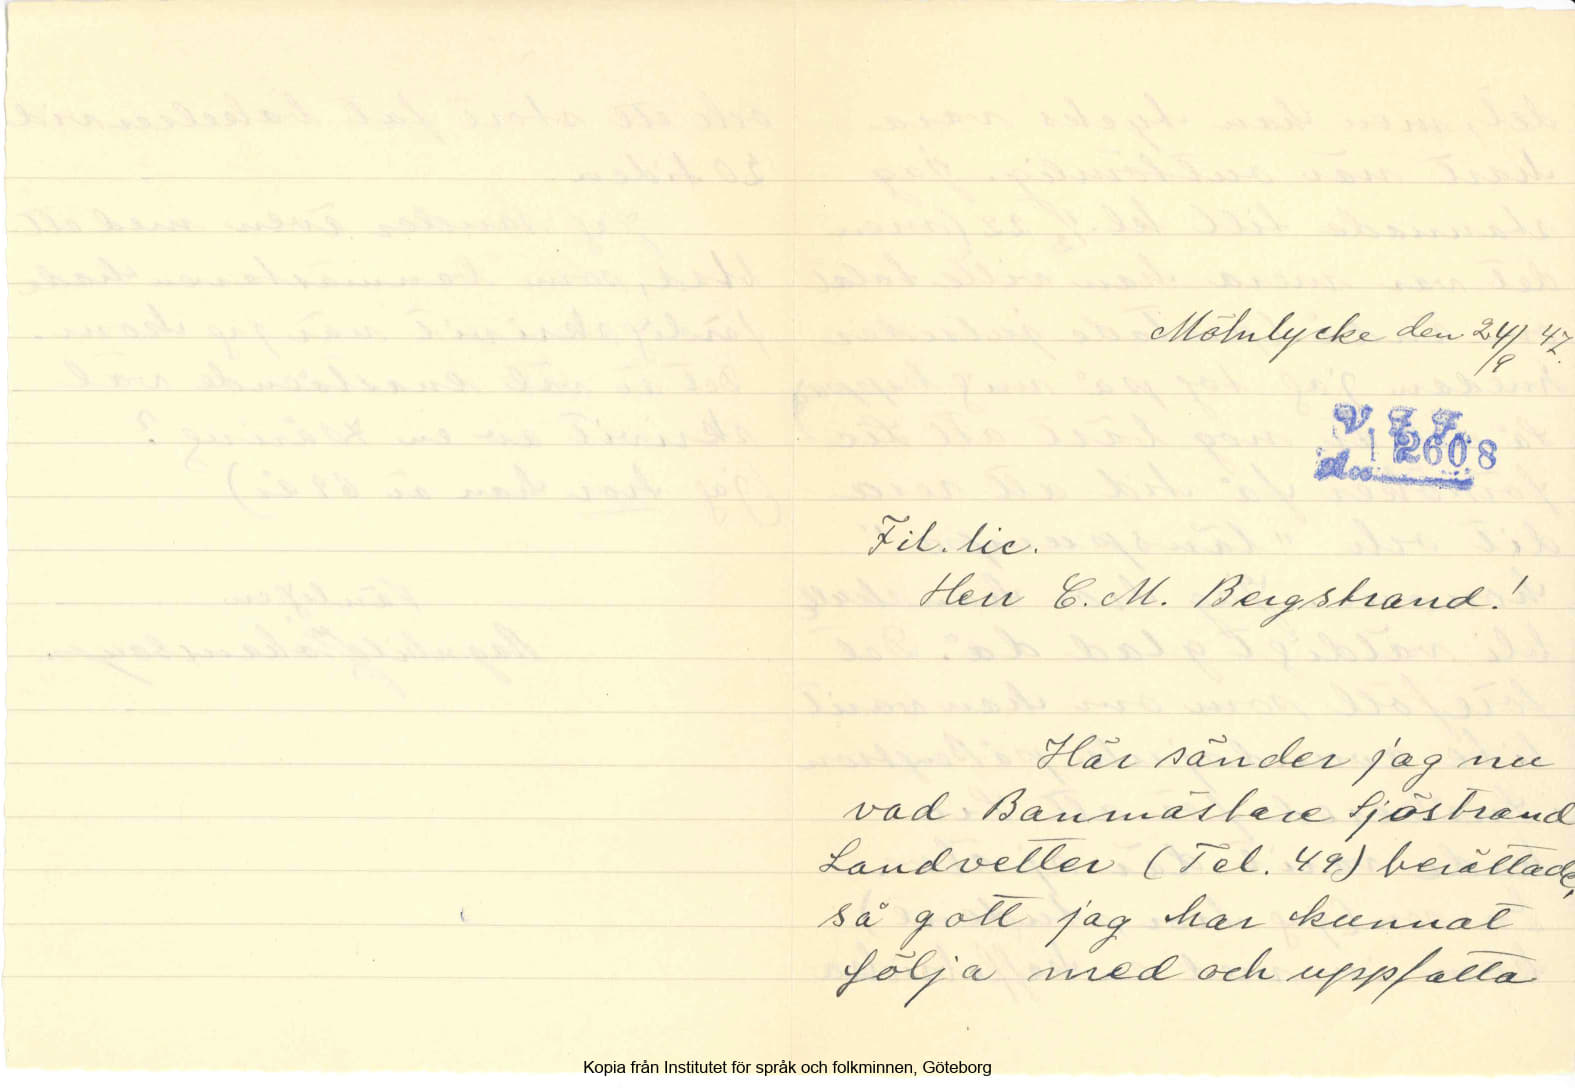 Mölnlycke den 24/9 47.
V. F. F.
12608
Fil. lic.
Herr C. M. Bergstrand!
Här sänder jag nu
vad Banmästare Sjöstrand
Landvetter (Tel. 49) berättade,
så gott jag har kunnat
följa med och uppfatta
Kopia från Institutet för språk och folkminnen, Göteborg